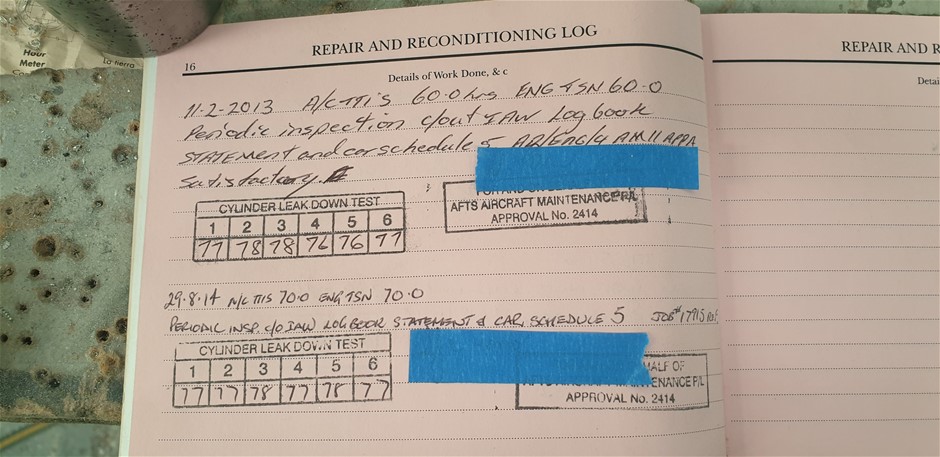 Hour
Meter
La tierra
REPAIR AND RECONDITIONING LOG
16
Details of Work Done, & c
11-2-2013 A/C TTIS 60.0 hrs ENG TSN 60.0
Periodic inspection c/out IAW Logbook
STATEMENT and car schedule 5
satisfactory.
CYLINDER LEAK DOWN TEST
1 2 3 4 5 6
77 78 78 76 76 77
AFTS AIRCRAFT MAINTENANCE P/L
APPROVAL No. 2414
29.8.14 A/C TTIS 70.0 ENG TSN 70.0
PERIODIC INSP. C/O IAW LOGBOOK STATEMENT & CAR SCHEDULE 5 JOB# 17915
CYLINDER LEAK DOWN TEST
1 2 3 4 5 6
77 77 78 77 78 77
HALF OF
AFTS AIRCRAFT MAINTENANCE P/L
APPROVAL No. 2414
REPAIR AND R
Detai